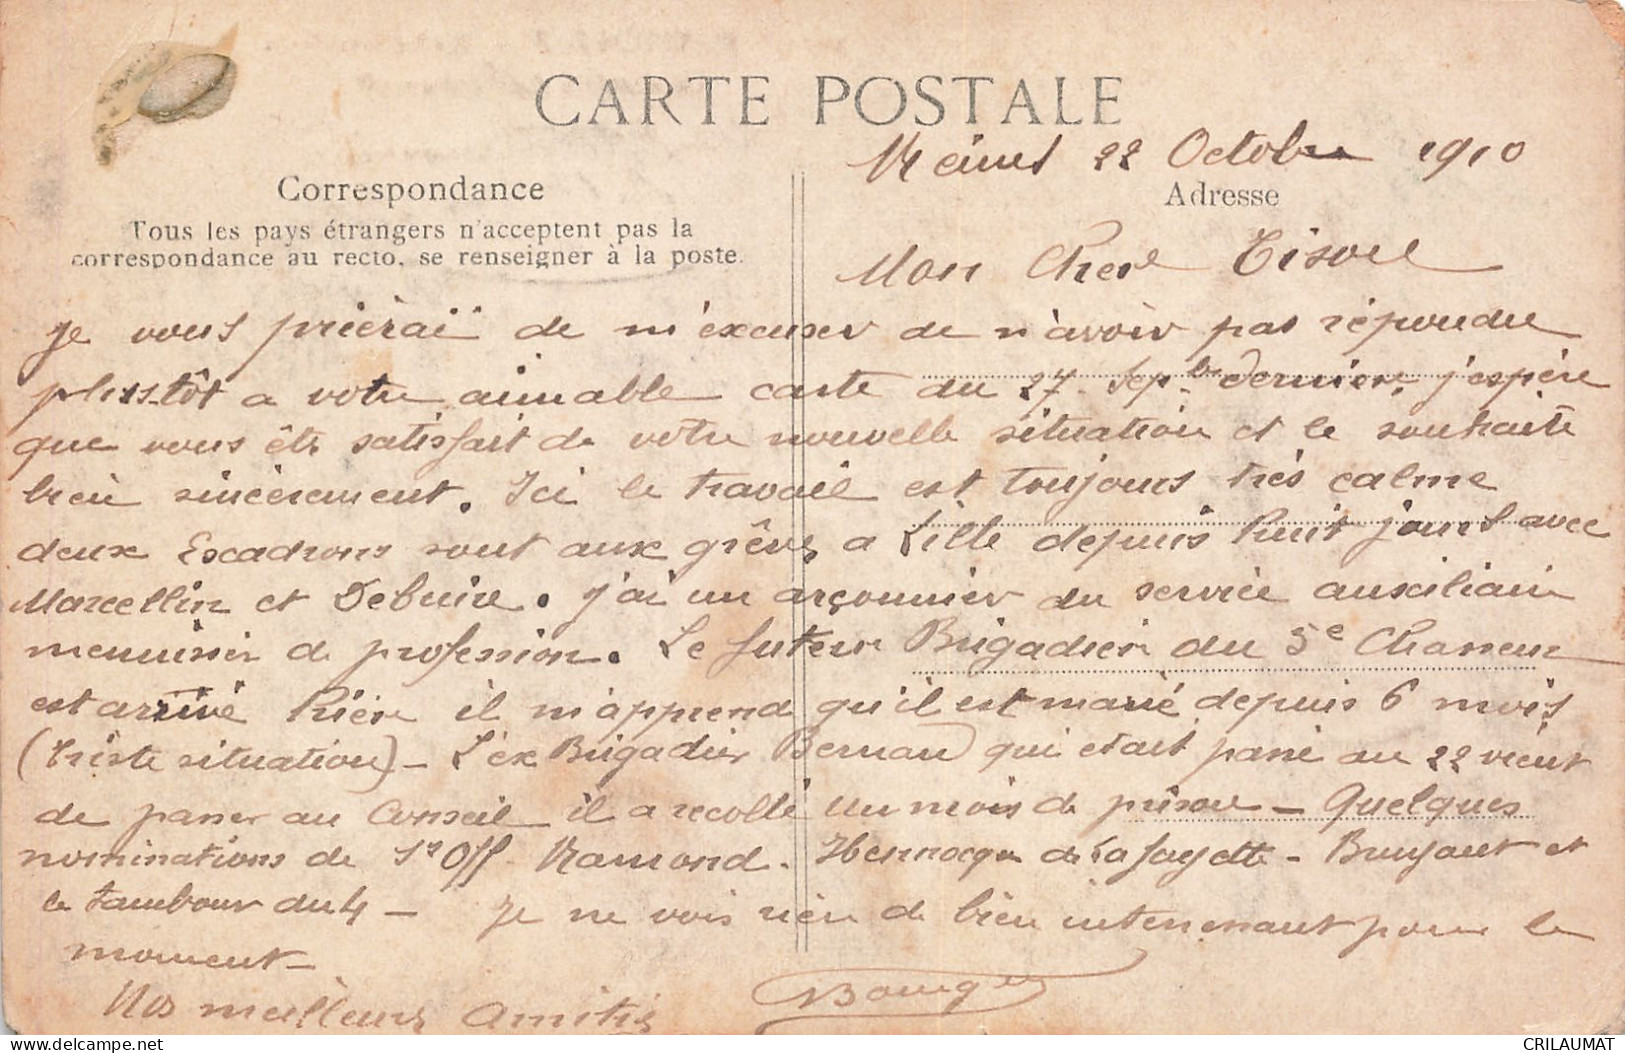 CARTE POSTALE
22 Octobre 1910
Correspondance
Adresse
Tous les pays étrangers n'acceptent pas la
correspondance au recto, se renseigner à la poste.
Mon Cher
je vous prièrai de m'excuser de n'avoir pas répondu
plus tôt a votre aimable carte du 27 Sepbre dernier, j'espère
que vous êts satisfait de votre nouvelle situation et le souhaite
bien sincèrement. Ici le travail est toujours très calme
deux Escadrons sont aux grêves a Lille depuis huit jours avec
Marcellin et Debuire. j'ai un arçonnier du service auxiliaire
menuisier de profession. Le futeur Brigadier du 5e Chasseur
est arrivé hier il m'apprend qu'il est marié depuis 6 mois
(triste situation) - L'ex Brigadier Bernard qui etait passé au 22 vient
de passer au Conseil il a recolté un mois de prison - Quelques
nominations de Ss Off Ramond. Hennocque de Lafayette - Bruyant et
le tambour du 4 - Je ne vois rien de bien interessant pour le
moment
Nos meilleurs Amitiés
CRILAUMAT